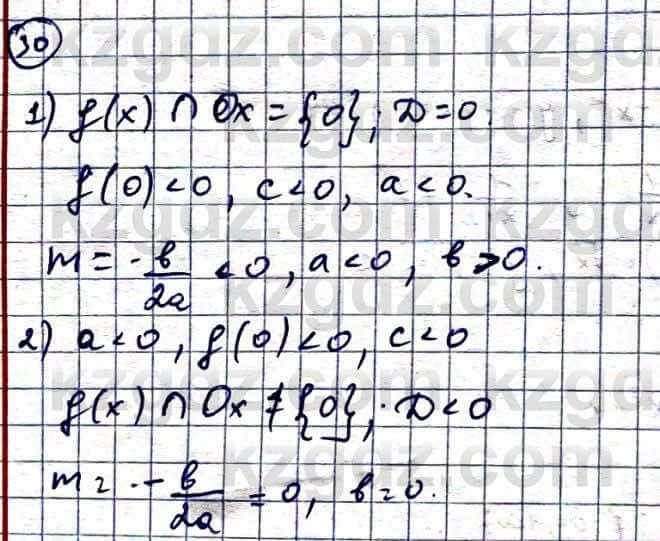 30
1) f(x) ∩ Ox = {0}, D = 0.
f(0) < 0, c < 0, a < 0.
m = - в/2a < 0, a < 0, в > 0.
2) a < 0, f(0) < 0, c < 0
f(x) ∩ Ox ≠ {0}, D < 0
m = - в/2a = 0, в = 0.
kzgdz.com